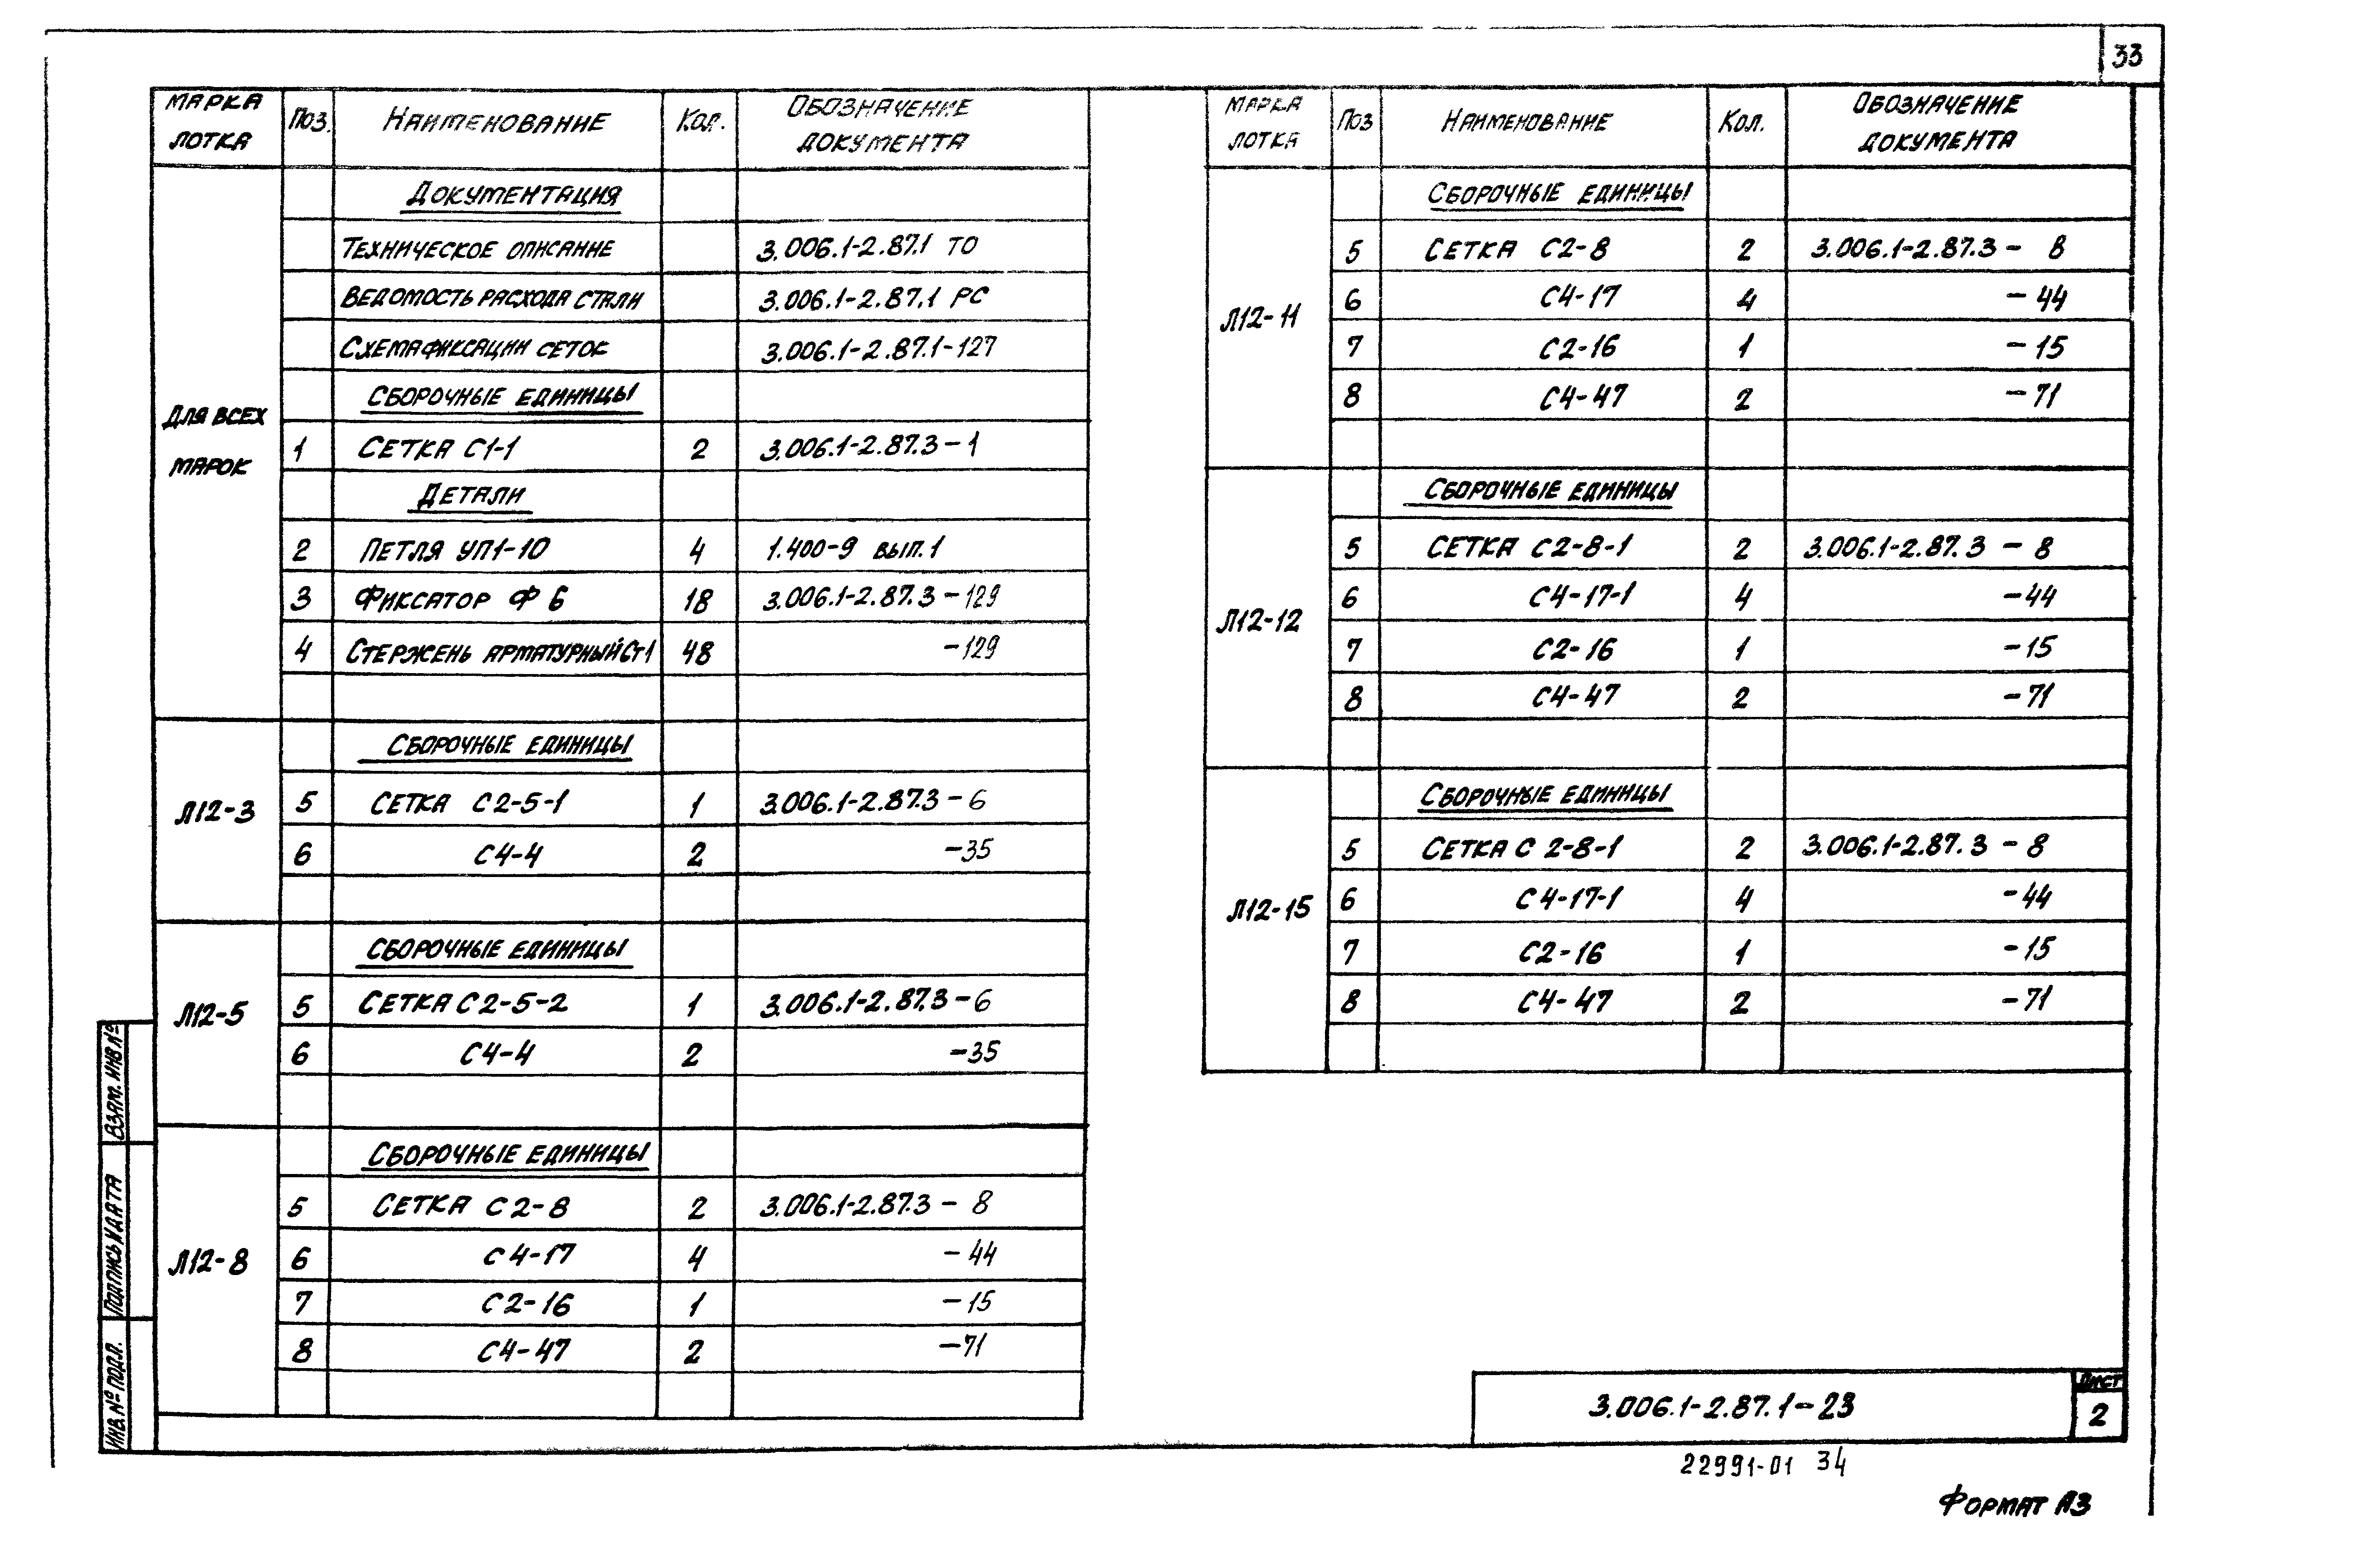 33
МАРКА ЛОТКА Поз. НАИМЕНОВАНИЕ Кол. ОБОЗНАЧЕНИЕ ДОКУМЕНТА
ДЛЯ ВСЕХ МАРОК
ДОКУМЕНТАЦИЯ
ТЕХНИЧЕСКОЕ ОПИСАНИЕ 3.006.1-2.87.1 ТО
ВЕДОМОСТЬ РАСХОДА СТАЛИ 3.006.1-2.87.1 РС
СХЕМА ФИКСАЦИИ СЕТОК 3.006.1-2.87.1-127
СБОРОЧНЫЕ ЕДИНИЦЫ
1 СЕТКА С1-1 2 3.006.1-2.87.3-1
ДЕТАЛИ
2 ПЕТЛЯ УП1-10 4 1.400-9 вып.1
3 ФИКСАТОР Ф6 18 3.006.1-2.87.3-129
4 СТЕРЖЕНЬ АРМАТУРНЫЙ Ст1 48 -129
Л12-3
СБОРОЧНЫЕ ЕДИНИЦЫ
5 СЕТКА С2-5-1 1 3.006.1-2.87.3-6
6 С4-4 2 -35
Л12-5
СБОРОЧНЫЕ ЕДИНИЦЫ
5 СЕТКА С2-5-2 1 3.006.1-2.87.3-6
6 С4-4 2 -35
Л12-8
СБОРОЧНЫЕ ЕДИНИЦЫ
5 СЕТКА С2-8 2 3.006.1-2.87.3-8
6 С4-17 4 -44
7 С2-16 1 -15
8 С4-47 2 -71
МАРКА ЛОТКА Поз НАИМЕНОВАНИЕ Кол. ОБОЗНАЧЕНИЕ ДОКУМЕНТА
Л12-11
СБОРОЧНЫЕ ЕДИНИЦЫ
5 СЕТКА С2-8 2 3.006.1-2.87.3-8
6 С4-17 4 -44
7 С2-16 1 -15
8 С4-47 2 -71
Л12-12
СБОРОЧНЫЕ ЕДИНИЦЫ
5 СЕТКА С2-8-1 2 3.006.1-2.87.3-8
6 С4-17-1 4 -44
7 С2-16 1 -15
8 С4-47 2 -71
Л12-15
СБОРОЧНЫЕ ЕДИНИЦЫ
5 СЕТКА С2-8-1 2 3.006.1-2.87.3-8
6 С4-17-1 4 -44
7 С2-16 1 -15
8 С4-47 2 -71
ВЗАМ. ИНВ №
ПОДПИСЬ И ДАТА
ИНВ. № ПОДЛ.
3.006.1-2.87.1-23
ЛИСТ
2
22991-01 34
ФОРМАТ А3